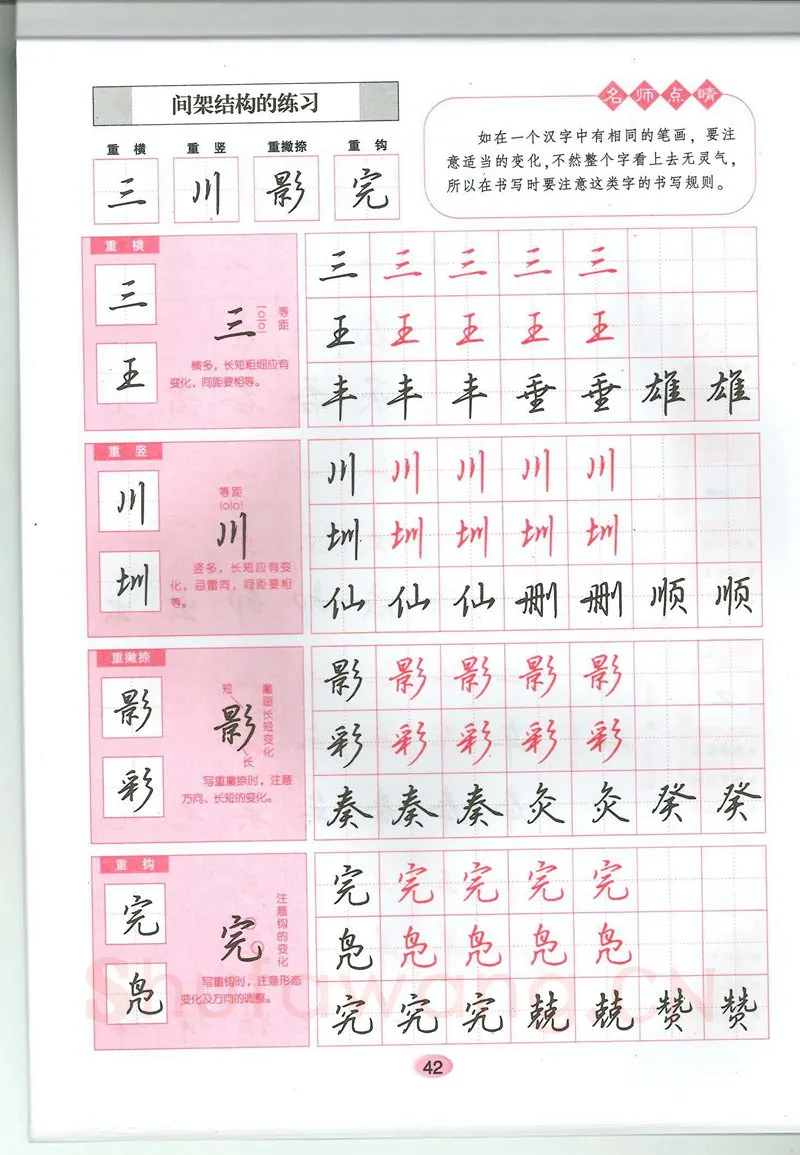 间架结构的练习
名师点睛
如在一个汉字中有相同的笔画，要注
意适当的变化，不然整个字看上去无灵气，
所以在书写时要注意这类字的书写规则。
重横 重竖 重撇捺 重钩
三 川 影 完
重横
三
王
三
等距
横多，长短粗细应有
变化，间距要相等。
三 三 三 三 三
王 王 王 王 王
丰 丰 丰 垂 垂 雄 雄
重竖
川
圳
等距
川
竖多，长短应有变
化，忌雷同，间距要相
等。
川 川 川 川 川
圳 圳 圳 圳 圳
仙 仙 仙 删 删 顺 顺
重撇捺
影
彩
短
影
长
撇画长短变化
写重撇捺时，注意
方向、长短的变化。
影 影 影 影 影
彩 彩 彩 彩 彩
奏 奏 奏 灸 灸 癸 癸
重钩
完
凫
完
注意钩的变化
写重钩时，注意形态
变化及方向的调整。
完 完 完 完 完
凫 凫 凫 凫 凫
究 究 究 兢 兢 赞 赞
Shufawang.CN
42